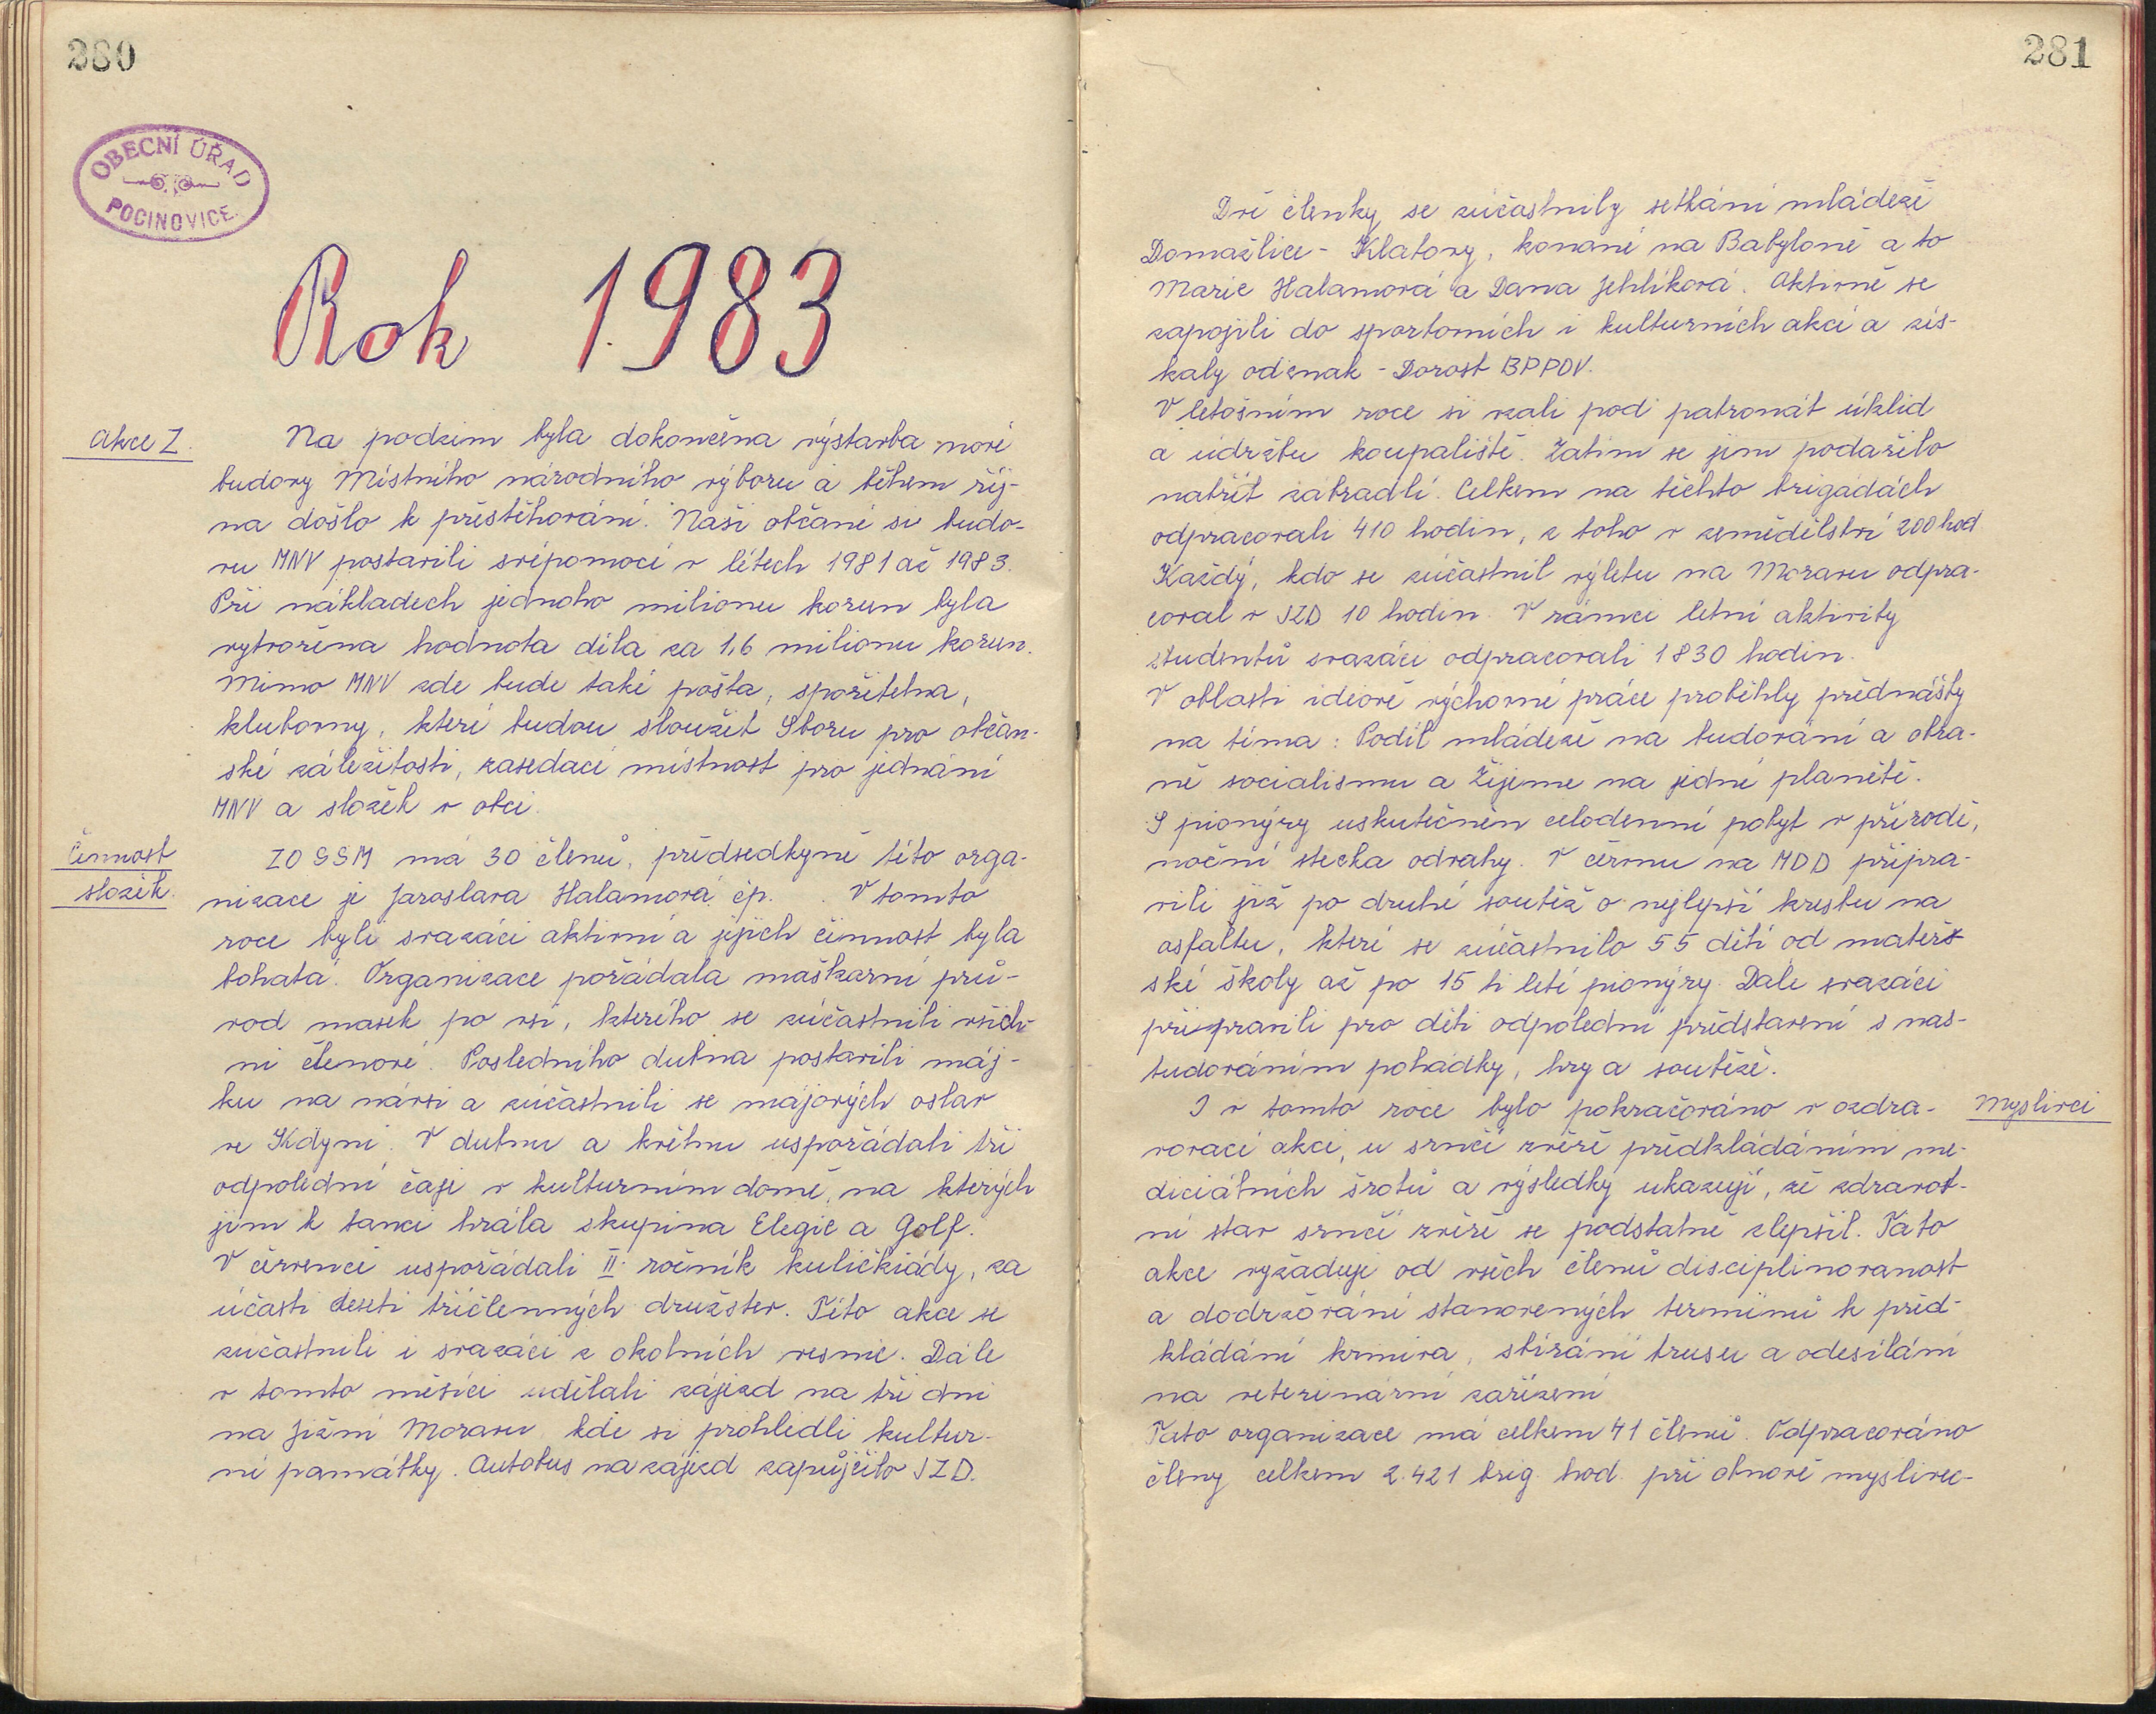 280
OBECNÍ ÚŘAD
POCINOVICE
Rok 1983
Akce Z.
Na podzim byla dokončena výstavba nové
budovy Místního národního výboru a během říj-
na došlo k přestěhování. Naši občané si budo-
vu MNV postavili svépomocí v létech 1981 až 1983.
Při nákladech jednoho milionu korun byla
vytvořena hodnota díla za 1,6 milionu korun.
Mimo MNV zde bude také pošta, spořitelna,
klubovny, které budou sloužit Sboru pro občan-
ské záležitosti, zasedací místnost pro jednání
MNV a složek v obci.
Činnost
složek.
ZO SSM má 30 členů, předsedkyně této orga-
nizace je Jaroslava Halamová čp. . V tomto
roce byli svazáci aktivní a jejich činnost byla
bohatá. Organizace pořádala maškarní prů-
vod masek po vsi, kterého se zúčastnili všich-
ni členové. Posledního dubna postavili máj-
ku na návsi a zúčastnili se májových oslav
ve Kdyni. V dubnu a květnu uspořádali tři
odpolední čaje v kulturním domě, na kterých
jim k tanci hrála skupina Elegie a Golf.
V červenci uspořádali II. ročník kuličkiády, za
účasti deseti tříčlenných družstev. Této akce se
zúčastnili i svazáci z okolních vesnic. Dále
v tomto měsíci udělali zájezd na tři dni
na Jižní Moravu, kde si prohlédli kultur-
ní památky. Autobus na zájezd zapůjčilo JZD.
281
Dvě členky se zúčastnily setkání mládeže
Domažlice - Klatovy, konané na Babyloně a to
Marie Halamová a Dana Jehlíková. Aktivně se
zapojili do sportovních i kulturních akcí a zís-
kaly odznak - Dorost BPPOV.
V letošním roce si vzali pod patronát úklid
a údržbu koupaliště. Zatím se jim podařilo
natřít zábradlí. Celkem na těchto brigádách
odpracovali 410 hodin, z toho v zemědělství 200 hod
Každý, kdo se zúčastnil výletu na Moravu odpra-
coval v JZD 10 hodin. V rámci letní aktivity
studentů svazáci odpracovali 1830 hodin.
V oblasti ideově výchovné práce proběhly přednášky
na téma: Podíl mládeže na budování a obra-
ně socialismu a Žijeme na jedné planetě.
S pionýry uskutečněn celodenní pobyt v přírodě,
noční stezka odvahy. V červnu na MDD připra-
vili již po druhé soutěž o nejlepší kresbu na
asfaltu, které se zúčastnilo 55 dětí od mateřs
ské školy až po 15 ti leté pionýry. Dále svazáci
připravili pro děti odpolední představení s nas-
tudováním pohádky, hry a soutěže.
Myslivci
I v tomto roce bylo pokračováno v ozdra-
vovací akci, u srnčí zvěře předkládáním me-
diciálních šrotů a výsledky ukazují, že zdravot-
ní stav srnčí zvěře se podstatně zlepšil. Tato
akce vyžaduje od všech členů disciplinovanost
a dodržování stanovených termínů k před-
kládání krmiva, sbírání trusu a odesílání
na veterinární zařízení
Tato organizace má celkem 41 členů. Odpracováno
členy celkem 2.421 brig. hod. při obnově myslivec-